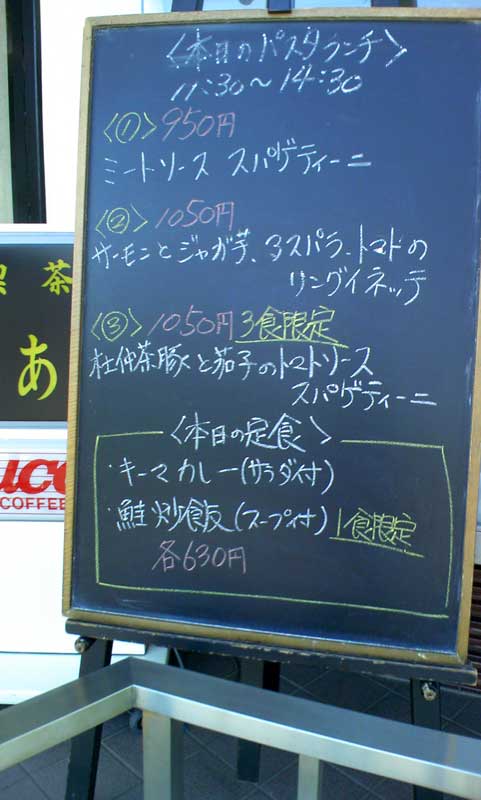 〈本日のパスタランチ〉
11:30〜14:30
〈①〉950円
ミートソース スパゲティーニ
〈②〉1050円
サーモンとジャガ芋、アスパラ、トマトの
リングイネッテ
〈③〉1050円 3食限定
杜仲茶豚と茄子のトマトソース
スパゲティーニ
〈本日の定食〉
・キーマカレー(サラダ付)
・鮭炒飯(スープ付) 1食限定
各630円
喫茶
あ
UCC
COFFEE